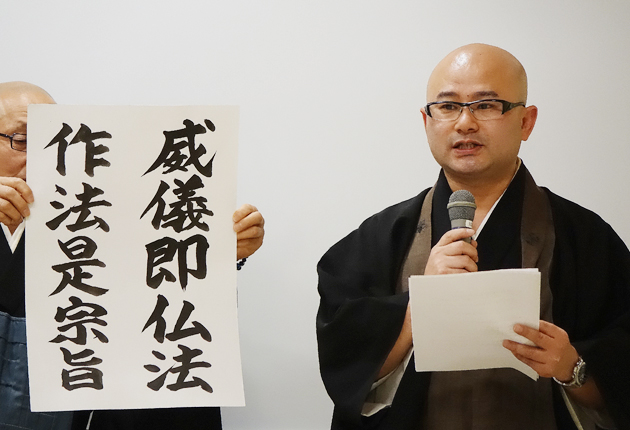 威儀即仏法
作法是宗旨